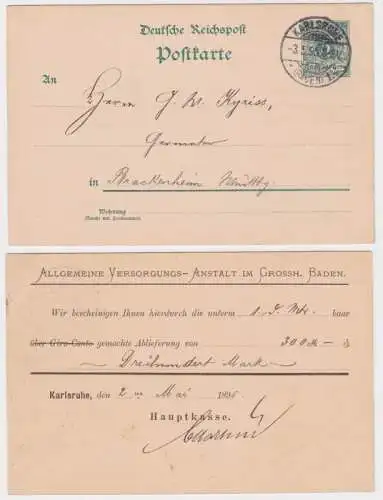 Deutsche Reichspost
Postkarte
KARLSRUHE
(BADEN)
An
Herrn J. W. Kyriss,
in Brackenheim
Wohnung
(Straße und Hausnummer)
ALLGEMEINE VERSORGUNGS-ANSTALT IM GROSSH. BADEN.
Wir bescheinigen Ihnen hierdurch die unterm 1. d. Mts. baar
über Giro-Conto gemachte Ablieferung von 300 M
Dreihundert Mark
Karlsruhe, den 2 Mai 189
Hauptkasse.